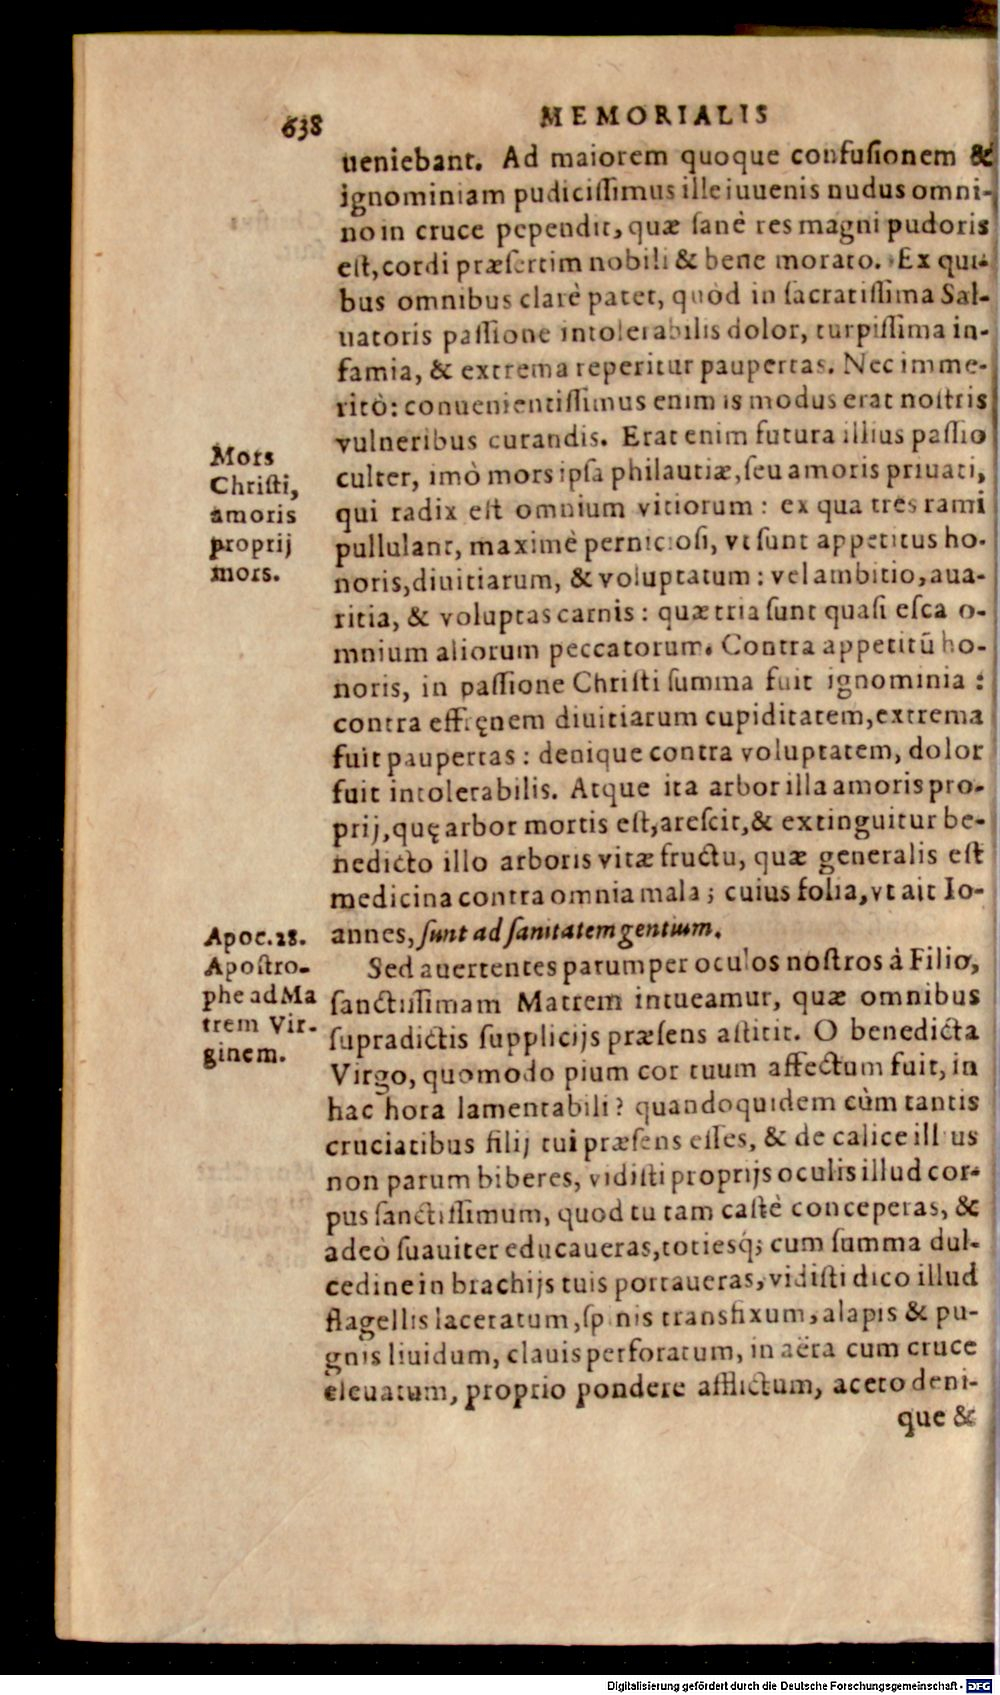 638
MEMORIALIS
ueniebant. Ad maiorem quoque confuſionem &
ignominiam pudiciſſimus ille iuuenis nudus omni-
no in cruce pependit, quæ ſanè res magni pudoris
eſt, cordi præſertim nobili & bene morato. Ex qui-
bus omnibus clarè patet, quòd in ſacratiſſima Sal-
uatoris paſſione intolerabilis dolor, turpiſſima in-
famia, & extrema reperitur paupertas. Nec imme-
ritò: conuenientiſſimus enim is modus erat noſtris
vulneribus curandis. Erat enim futura illius paſſio
culter, imò mors ipſa philautiæ, ſeu amoris priuati,
qui radix eſt omnium vitiorum: ex qua tres rami
pullulant, maximè pernicioſi, vt ſunt appetitus ho-
noris, diuitiarum, & voluptatum: vel ambitio, aua-
ritia, & voluptas carnis: quæ tria ſunt quaſi eſca o-
mnium aliorum peccatorum. Contra appetitū ho-
noris, in paſſione Chriſti ſumma fuit ignominia:
contra effręnem diuitiarum cupiditatem, extrema
fuit paupertas: denique contra voluptatem, dolor
fuit intolerabilis. Atque ita arbor illa amoris pro-
prij, quę arbor mortis eſt, areſcit, & extinguitur be-
nedicto illo arboris vitæ fructu, quæ generalis eſt
medicina contra omnia mala; cuius folia, vt ait Io-
annes, ſunt ad ſanitatem gentium.
Sed auertentes parumper oculos noſtros à Filio,
ſanctiſſimam Matrem intueamur, quæ omnibus
ſupradictis ſupplicijs præſens aſtitit. O benedicta
Virgo, quomodo pium cor tuum affectum fuit, in
hac hora lamentabili? quandoquidem cùm tantis
cruciatibus filij tui præſens eſſes, & de calice illius
non parum biberes, vidiſti proprijs oculis illud cor-
pus ſanctiſſimum, quod tu tam caſtè conceperas, &
adeò ſuauiter educaueras, totieſq́; cum ſumma dul-
cedine in brachijs tuis portaueras, vidiſti dico illud
flagellis laceratum, ſpinis transfixum, alapis & pu-
gnis liuidum, clauis perforatum, in aëra cum cruce
eleuatum, proprio pondere afflictum, aceto deni-
que &
Mors
Chriſti,
amoris
proprij
mors.
Apoc. 28.
Apoſtro-
phe ad Ma
trem Vir-
ginem.
Digitalisierung gefördert durch die Deutsche Forschungsgemeinschaft - DFG